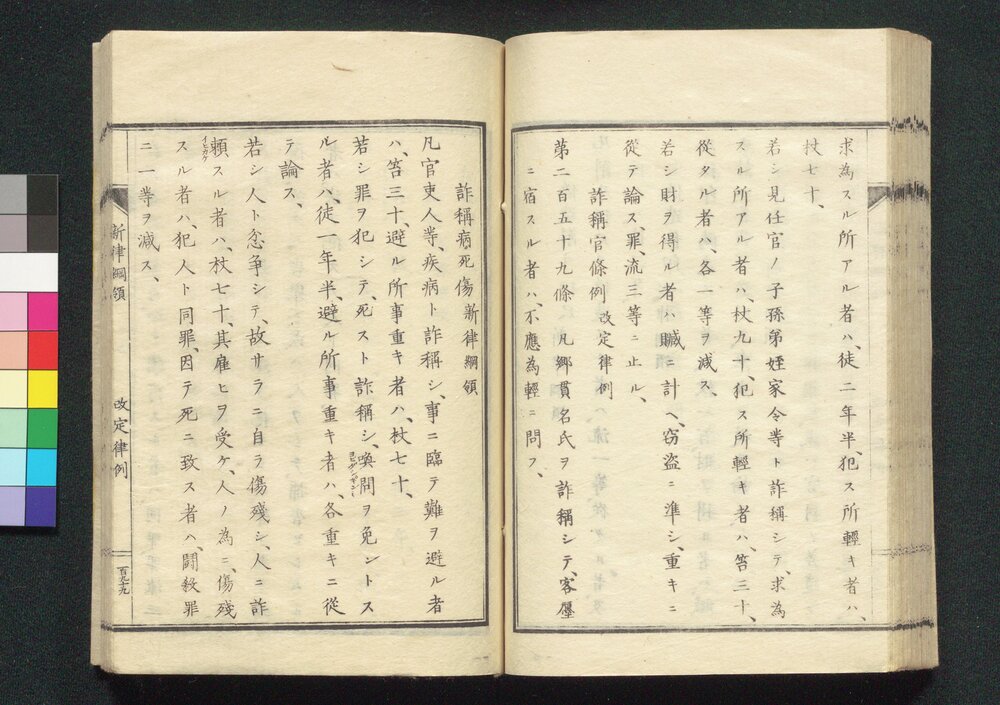 求為スル所アル者ハ、徒二年半、犯ス所輕キ者ハ、
杖七十、
若シ見任官ノ子孫弟姪家令等ト詐稱シテ、求為
スル所アル者ハ、杖九十、犯ス所輕キ者ハ、笞三十、
從タル者ハ、各一等ヲ減ス、
若シ財ヲ得ル者ハ、贓ニ計ヘ、窃盗ニ準シ、重キニ
從テ論ス、罪、流三等ニ止ル、
詐稱官條例 改定律例
第二百五十九條 凡郷貫名氏ヲ詐稱シテ、客廛
ニ宿スル者ハ、不應為輕ニ問フ、
詐稱病死傷 新律綱領
凡官吏人等、疾病ト詐稱シ、事ニ臨テ難ヲ避ル者
ハ、笞三十、避ル所事重キ者ハ、杖七十、
若シ罪ヲ犯シテ、死スト詐稱シ、喚問ヲ免ントス
ル者ハ、徒一年半、避ル所事重キ者ハ、各重キニ從
テ論ス、
若シ人ト忿争シテ、故サラニ自ラ傷残シ、人ニ詐
頼スル者ハ、杖七十、其雇ヒヲ受ケ、人ノ為ニ、傷残
イヒカケ
スル者ハ、犯人ト同罪、因テ死ニ致ス者ハ、闘殺罪
ニ一等ヲ減ス、
新律綱領 改定律例 百九十九